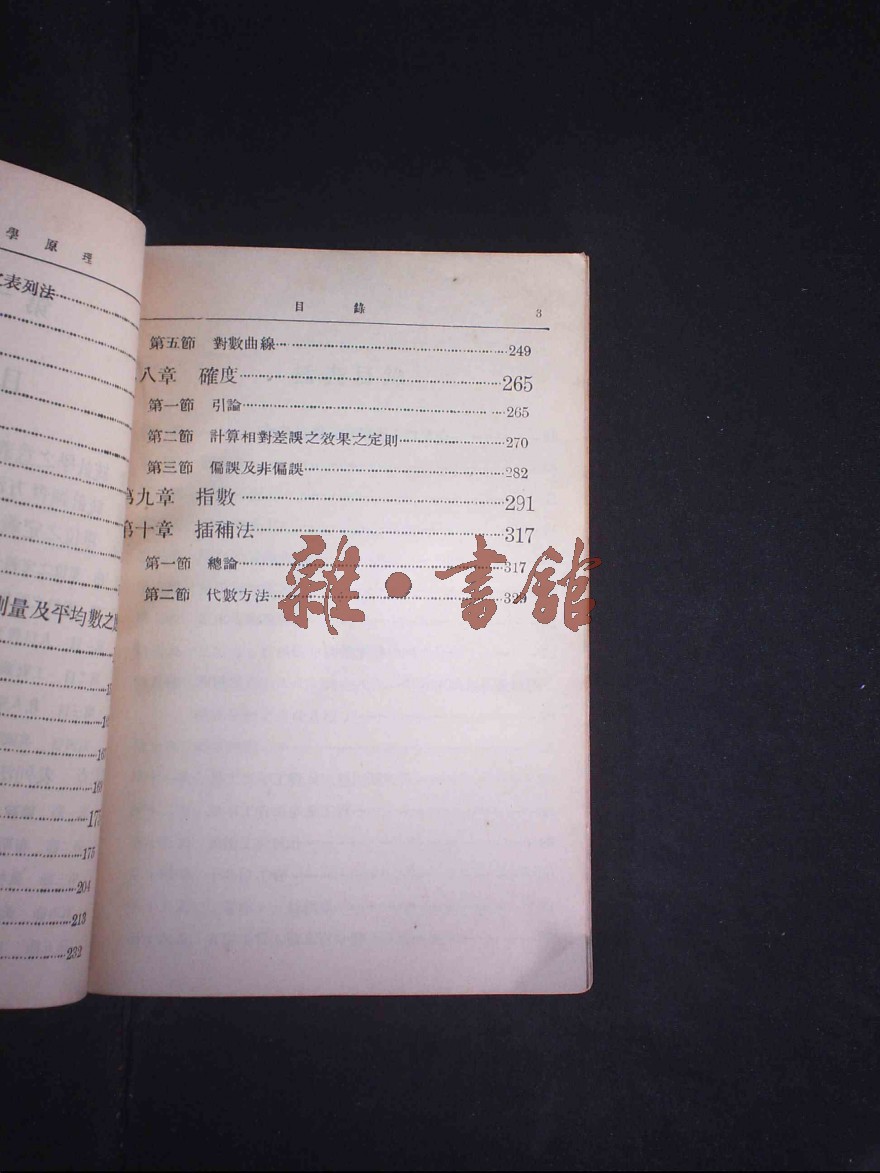 學原理
之表列法
測量及平均數之
168
175
175
204
213
232
目錄 3
第五節 對數曲線 249
八章 確度 265
第一節 引論 265
第二節 計算相對差誤之效果之定則 270
第三節 偏誤及非偏誤 282
第九章 指數 291
第十章 插補法 317
第一節 總論 317
第二節 代數方法 329
雜·書館